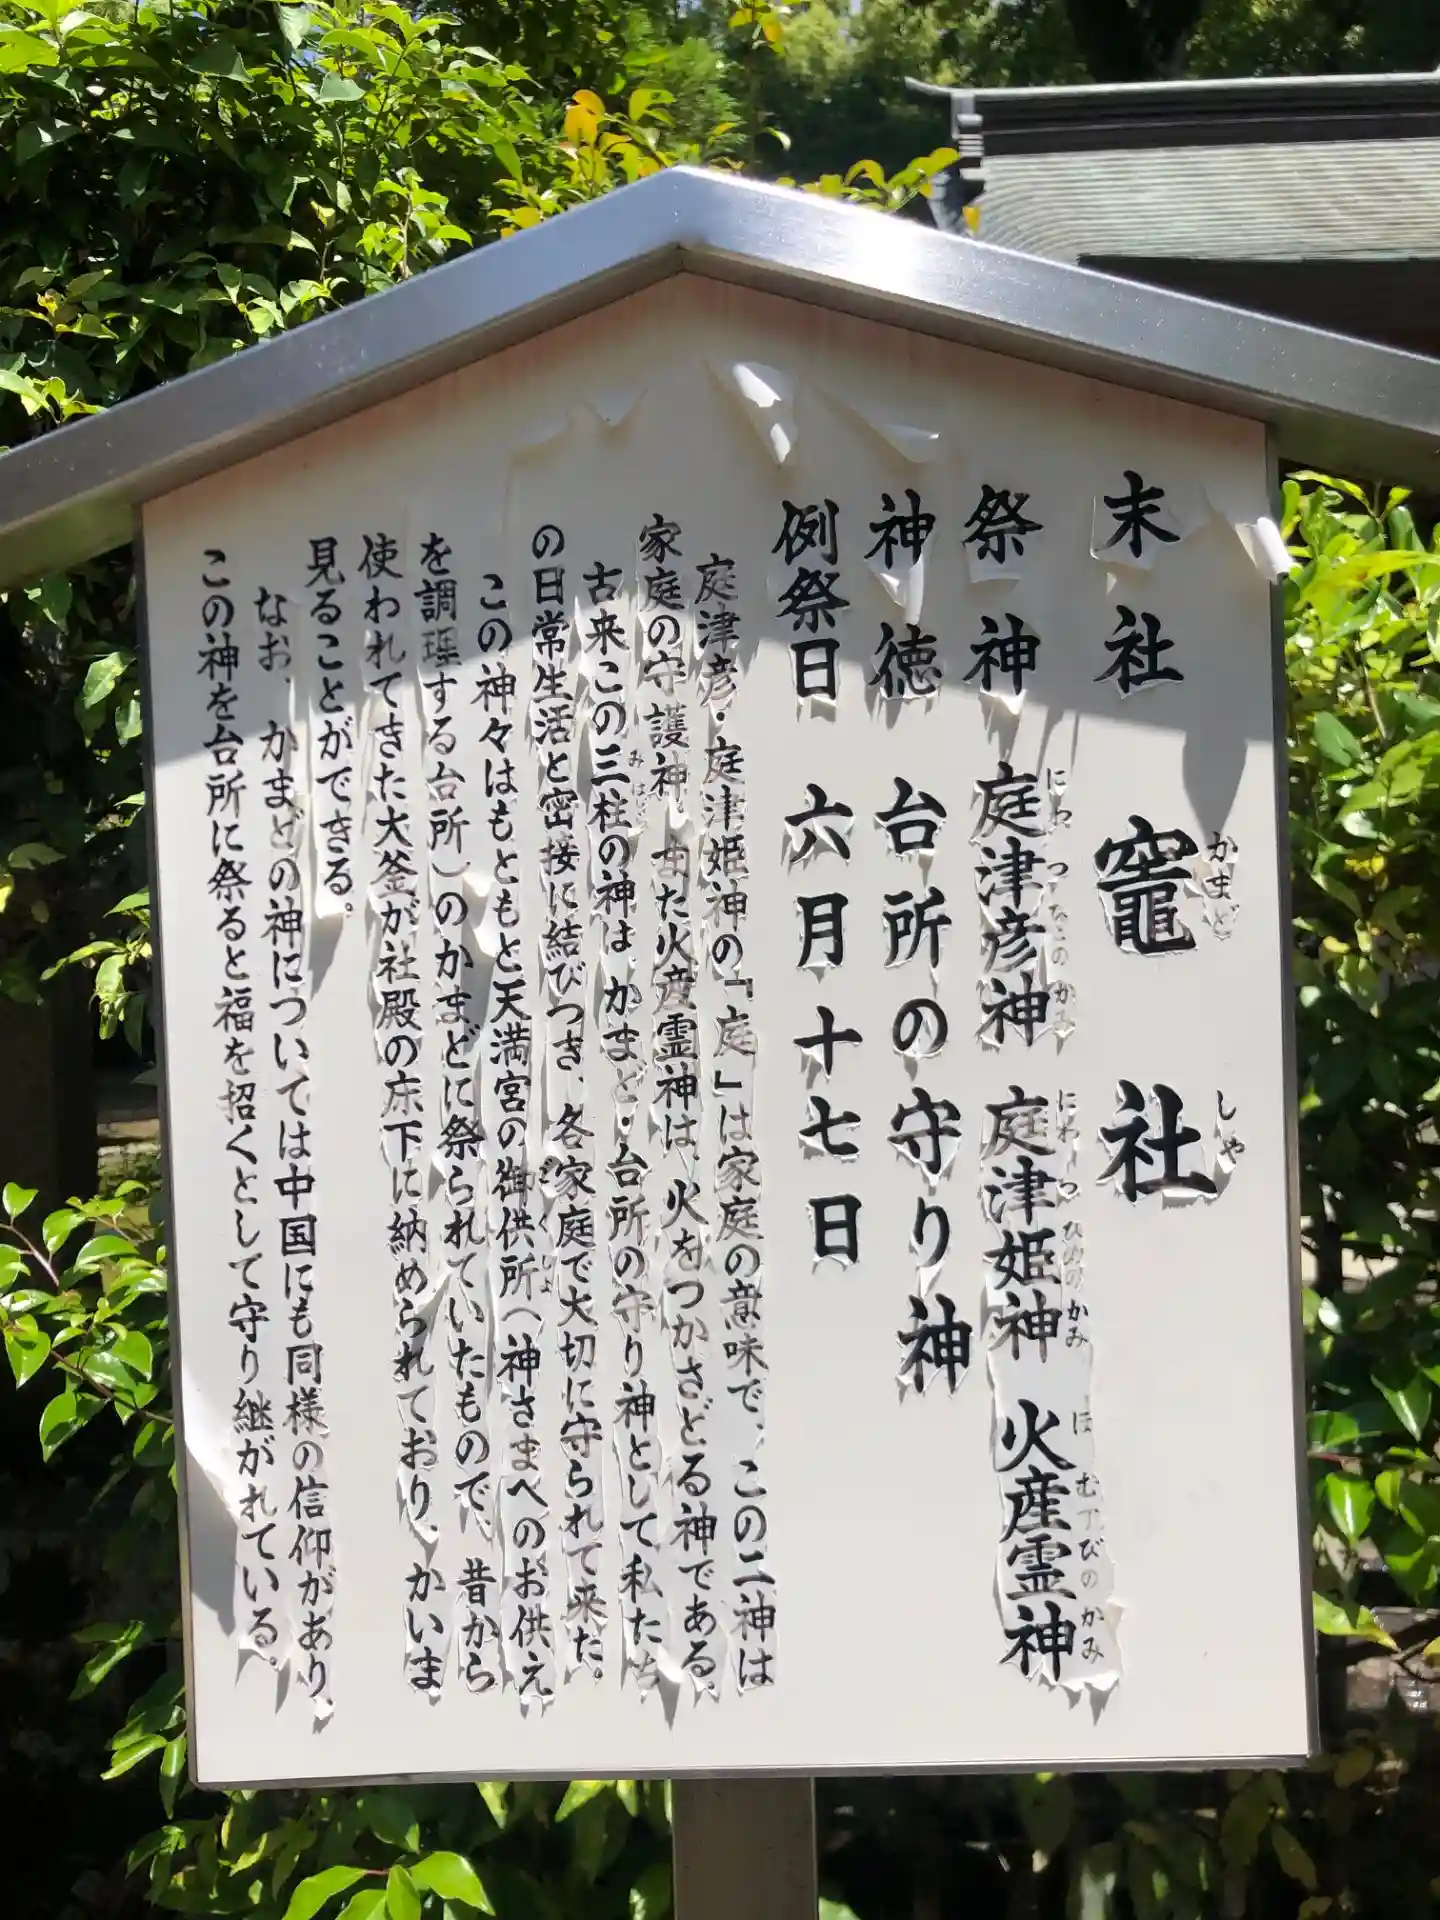 末社 竈社
かまど しゃ
祭神 庭津彦神 庭津姫神 火産霊神
にわつひこのかみ にわつひめのかみ ほむすびのかみ
神徳 台所の守り神
例祭日 六月十七日
庭津彦・庭津姫神の『庭』は家庭の意味で、この二神は
家庭の守護神、また火産霊神は、火をつかさどる神である。
古来この三柱の神は、かまど・台所の守り神として私たち
の日常生活と密接に結びつき、各家庭で大切に守られて来た。
この神々はもともと天満宮の御供所(神さまへのお供え
を調理する台所)のかまどに祭られていたもので、昔から
使われてきた大釜が社殿の床下に納められており、かいま
見ることができる。
なお、かまどの神については中国にも同様の信仰があり、
この神を台所に祭ると福を招くとして守り継がれている。